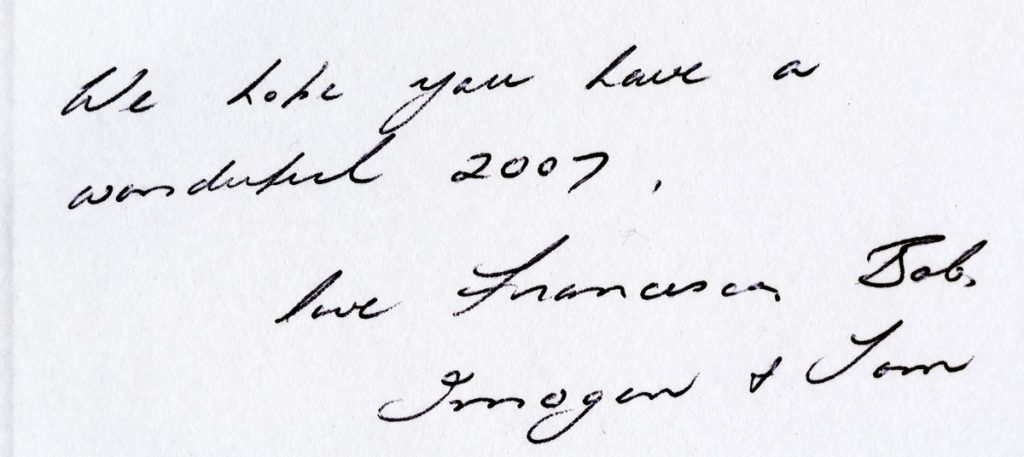 We hope you have a
wonderful 2007.
love Francesca, Bob,
Imogen + Tom